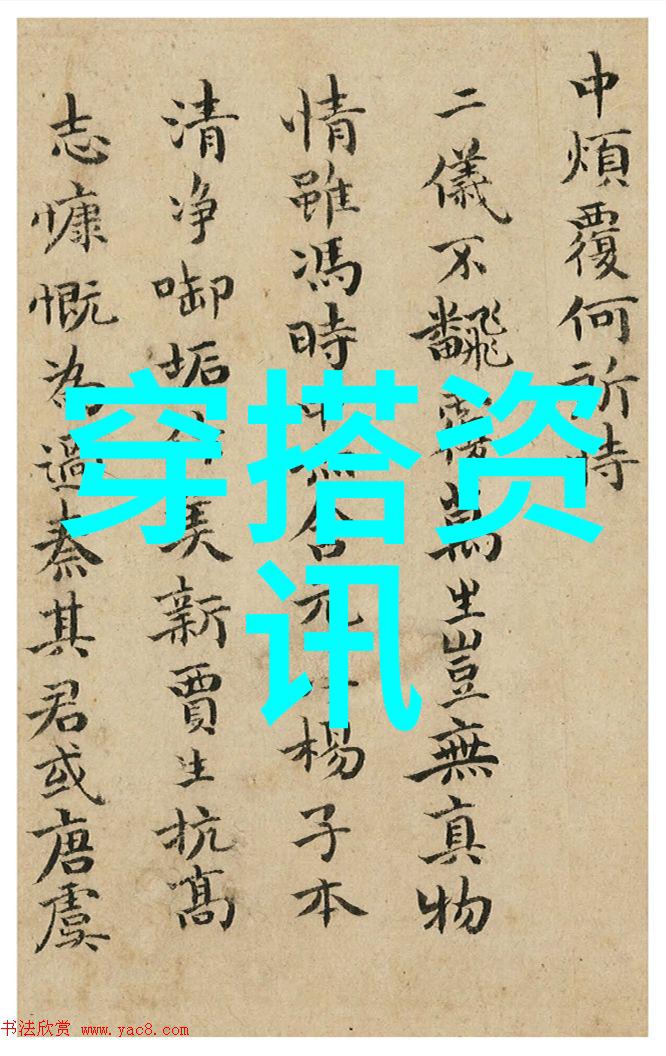 中煩覆何所
二儀不飜萬生豈無真物
情雖馮時合元楊子本
清净啣垢美新賈生抗高
志慷慨為過秦其君或唐虞
穿搭资
讯
书法欣赏 www.yac8.com